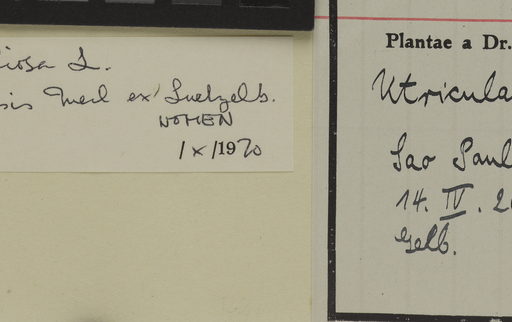 iosa L.
sis Merl ex Luetzelb.
NOMEN
1/x/1970
Plantae a Dr.
Utricula
Sao Paul
14. IV. 2
Gelb.